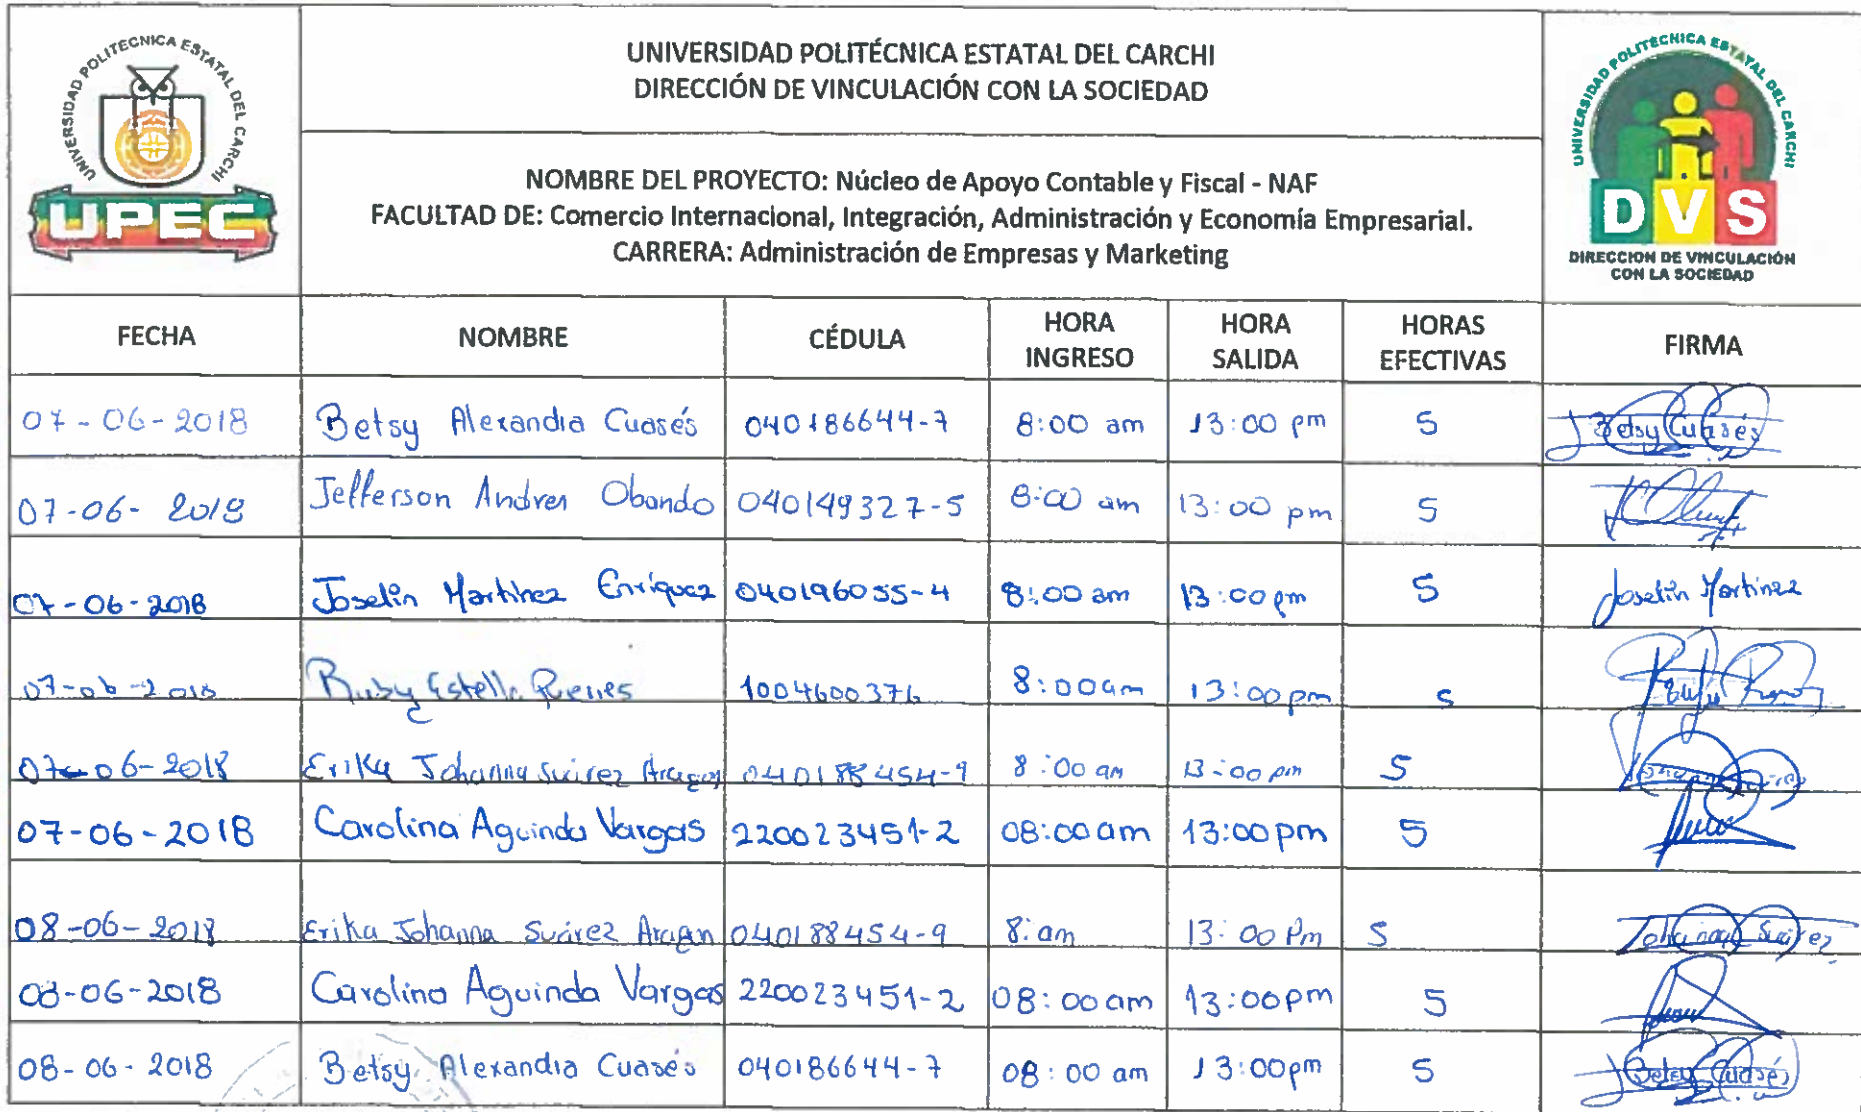 UNIVERSIDAD POLITECNICA ESTATAL DEL CARCHI
UPEC
UNIVERSIDAD POLITÉCNICA ESTATAL DEL CARCHI
DIRECCIÓN DE VINCULACIÓN CON LA SOCIEDAD
NOMBRE DEL PROYECTO: Núcleo de Apoyo Contable y Fiscal - NAF
FACULTAD DE: Comercio Internacional, Integración, Administración y Economía Empresarial.
CARRERA: Administración de Empresas y Marketing
UNIVERSIDAD POLITECNICA ESTATAL DEL CARCHI
DVS
DIRECCION DE VINCULACIÓN
CON LA SOCIEDAD
FECHA NOMBRE CÉDULA HORA INGRESO HORA SALIDA HORAS EFECTIVAS FIRMA
07-06-2018 Betsy Alexandra Cuasés 040186644-7 8:00 am 13:00 pm 5 Betsy Cuasés
07-06-2018 Jefferson Andres Obando 040149327-5 8:00 am 13:00 pm 5
07-06-2018 Joselin Martinez Enriquez 040196055-4 8:00 am 13:00 pm 5 Joselin Martinez
07-06-2018 Ruby Estella 1004600376 8:00am 13:00pm 5
07-06-2018 Erika Johanna Suárez Aragon 040188454-9 8:00 am 13:00 pm 5
07-06-2018 Carolina Aguinda Vargas 220023451-2 08:00am 13:00pm 5
08-06-2018 Erika Johanna Suárez Aragon 040188454-9 8:am 13:00 Pm 5 Johanna Suárez
08-06-2018 Carolina Aguinda Vargas 220023451-2 08:00am 13:00pm 5
08-06-2018 Betsy Alexandra Cuasés 040186644-7 08:00 am 13:00pm 5 Betsy Cuasés